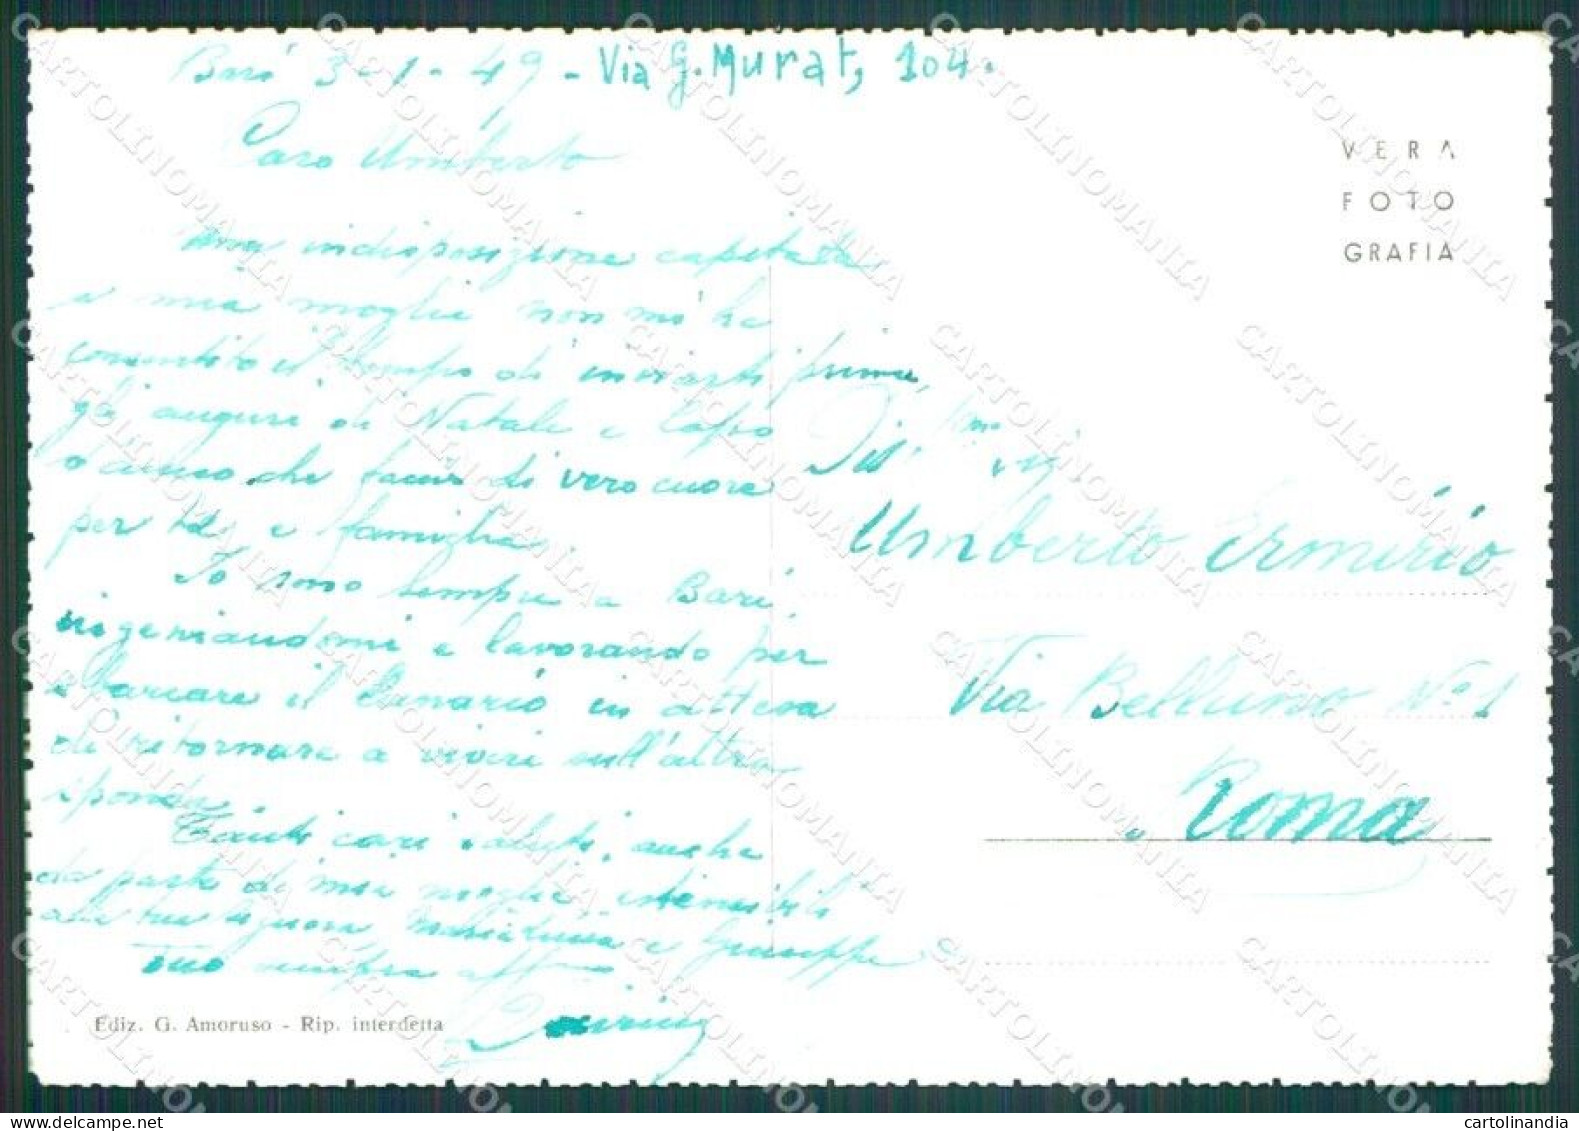 Bari 3-1-49 - Via G. Murat, 104.
Caro Umberto
una indisposizione capitata
a mia moglie non mi ha
consentito il tempo di inviarti prima,
gli auguri di Natale e Capo
d'anno che faccio di vero cuore
per te e famiglia.
Io sono sempre a Bari,
ingegnandomi e lavorando per
sbarcare il lunario in attesa
di ritornare a vivere sull'altra
sponda.
Tanti cari saluti, anche
da parte di mia moglie, estensibili
alla tua signora, Maria Luisa e Giuseppe
Tuo sempre aff
VERA
FOTO
GRAFIA
Umberto Ermirio
Via Belluno N° 1
Roma
Ediz. G. Amoruso - Rip. interdetta
CARTOLINOMANIA
cartolinandia